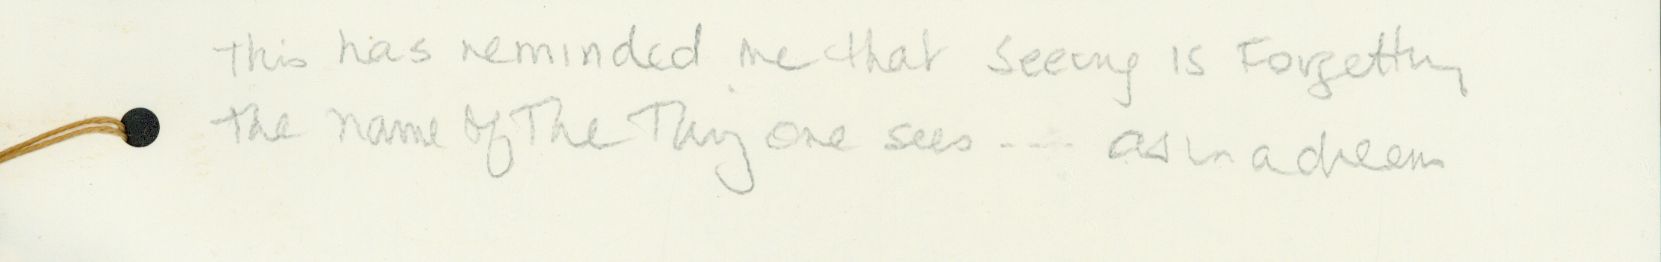 This has reminded me that Seeing is Forgetting
the name of The Thing one sees .... as in a dream